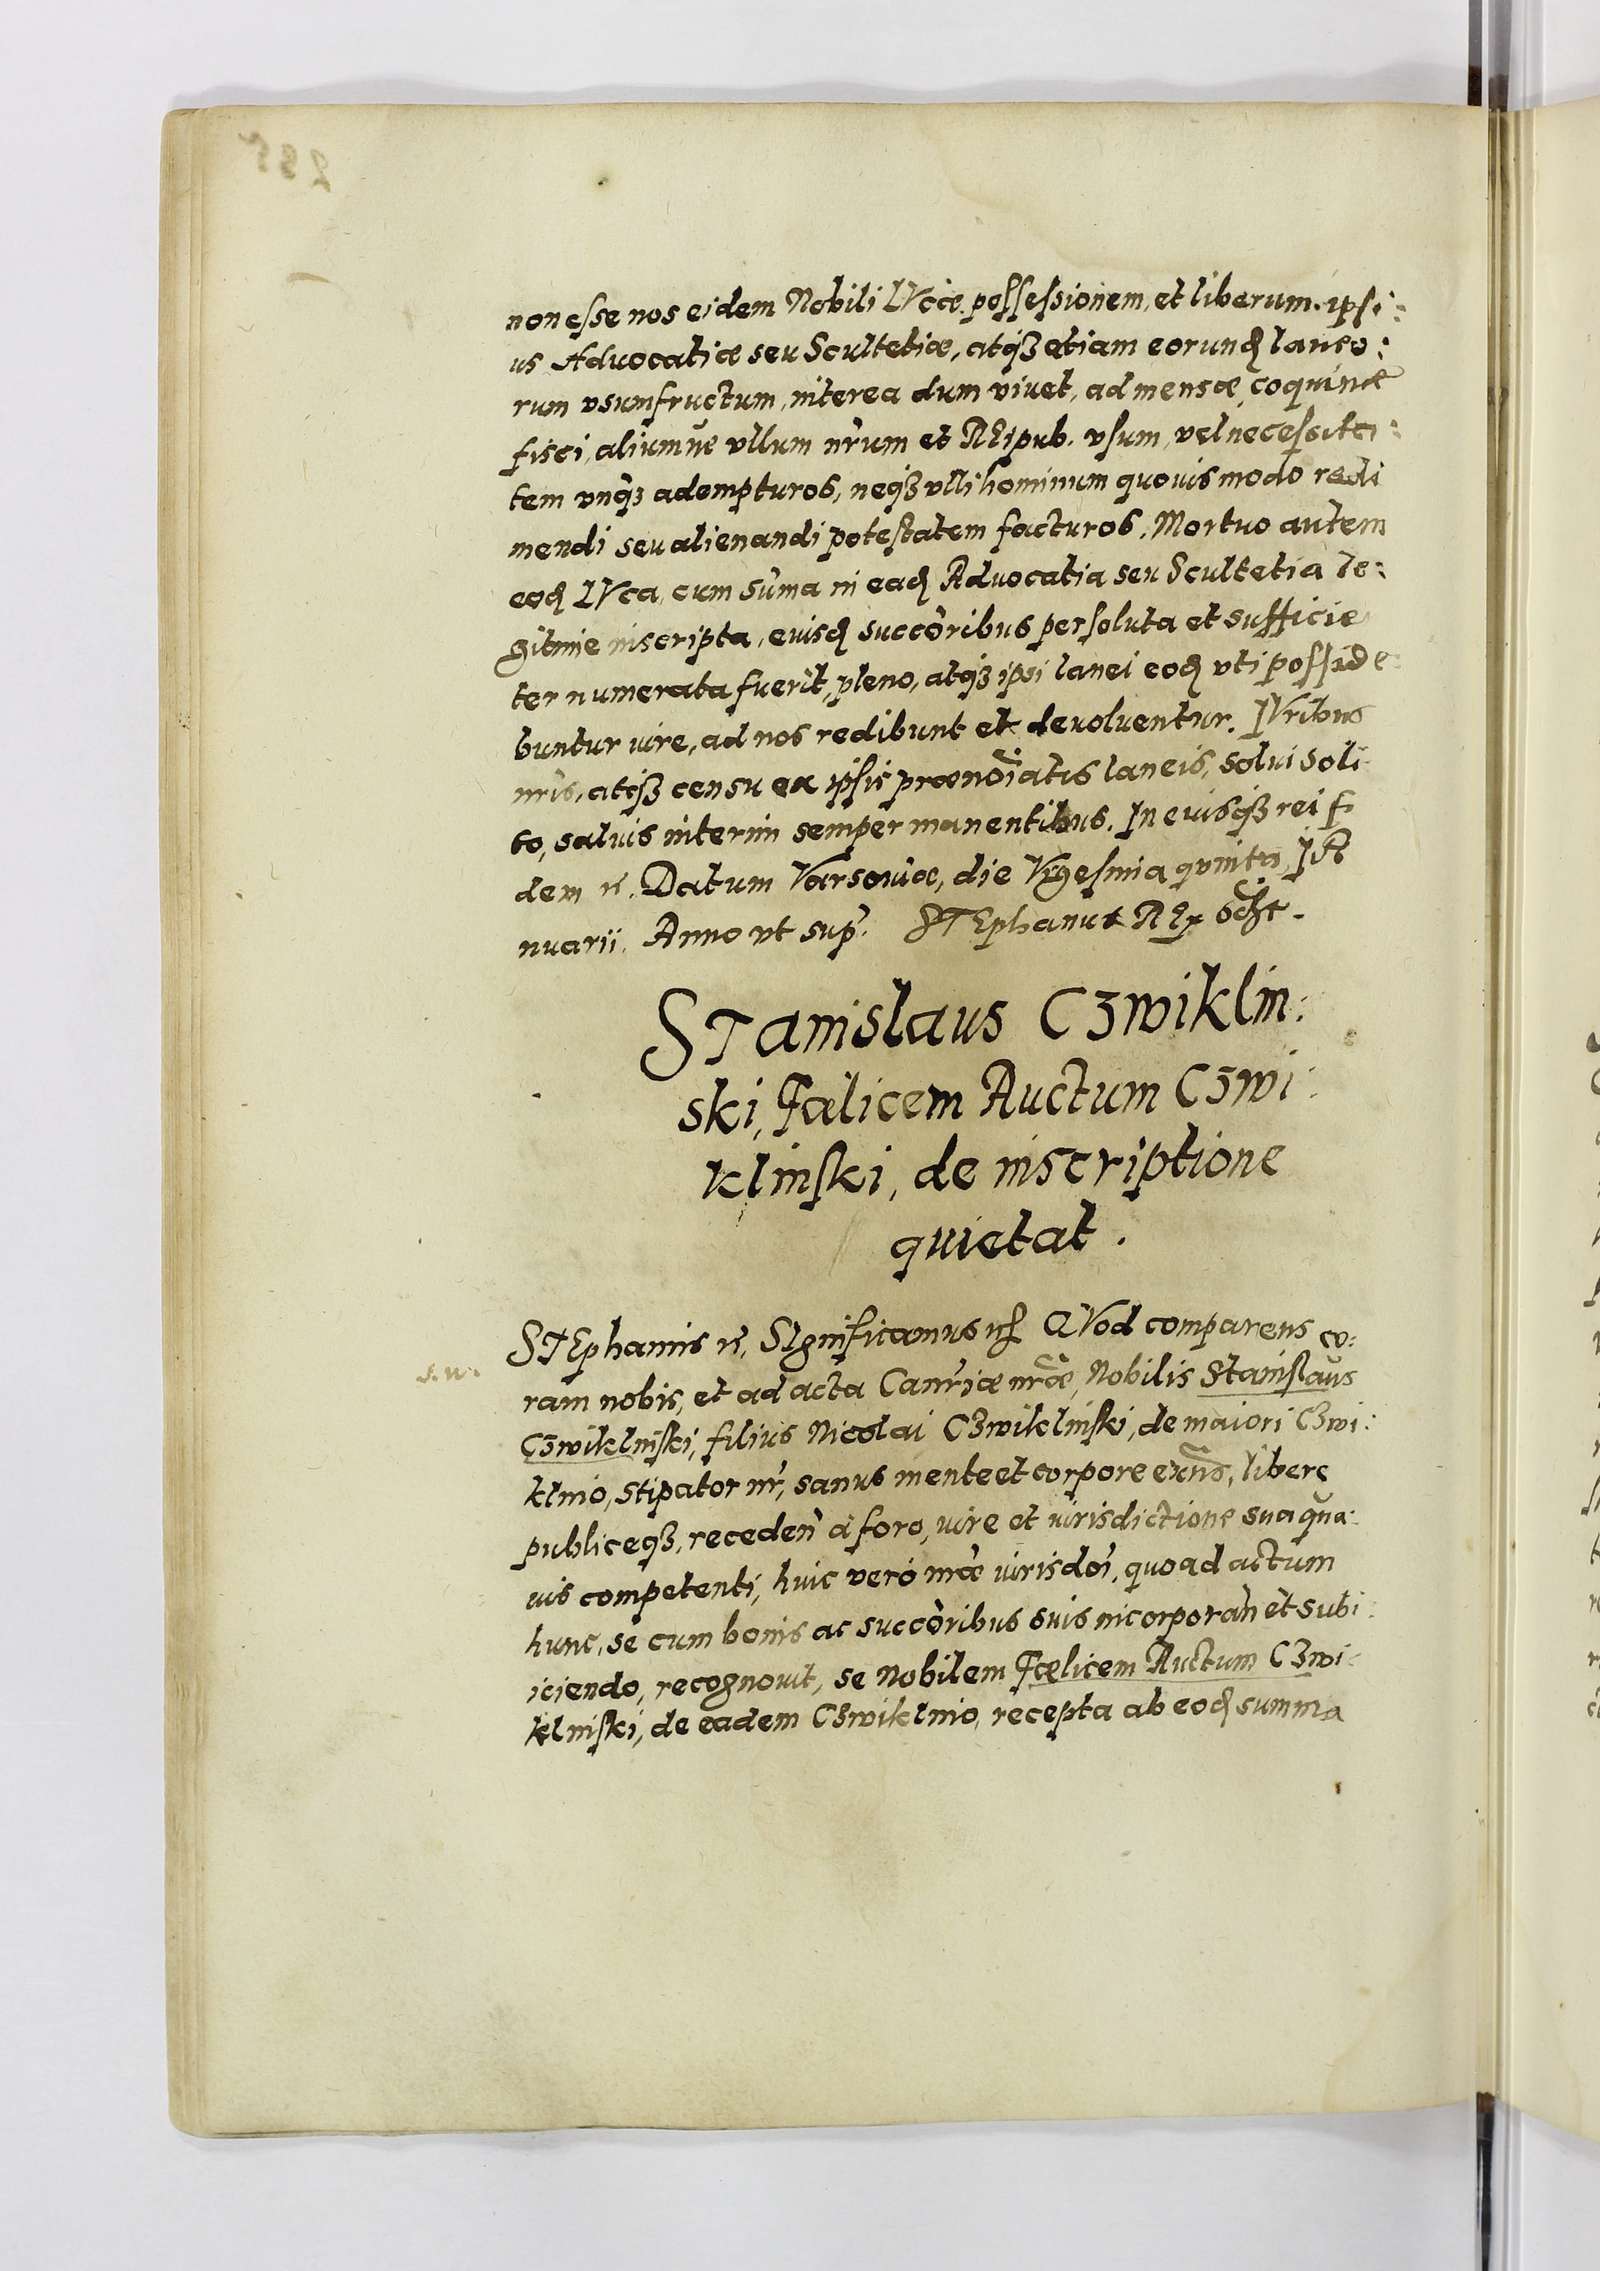 non esse nos eidem Nobili LVcæ possessionem, et liberum ipsi:
us Advocatiæ seu Scultetiæ, atqȝ etiam eorund laneo:
rum vsumfructum, interea dum viuet, ad mensæ, coquinæ
fisci, aliumue vllum nrum et REipub. vsum, vel necessita:
tem vnqȝ adempturos, neqȝ vlli hominum quouis modo redi
mendi seu alienandi potestatem facturos. Mortuo autem
eod LVca, cum suma in ead Advocatia seu Scultetia le:
gitime inscripta, euisd succoribus persoluta et sufficie
ter numerata fuerit, pleno, atqȝ ipsi lanei eod vti posside:
buntur iure, ad nos redibunt et deuoluentur. IVribus
nris, atqȝ censu ex ipsis prænoiatis laneis, solui soli
to, saluis interim semper manentibus. In euisqȝ rei f
dem rc. Datum Varsouiæ, die VIgesima quinta IA
nuarii. Anno vt sup. STEphanus REx sct.
STanislaus Cȝwiklin:
ski, Fælicem Auctum Cȝwi:
klinski, de inscriptione
quietat.
STEphanus rc. SIgnificamus QVod comparens co:
s. n.
ram nobis, et ad acta Canriæ nræ, Nobilis Stanislaus
Cȝwiklinski, filius Nicolai Cȝwiklinski, de maiori Cȝwi:
klino, stipator nr, sanus mente et corpore exns, libere
publiceqȝ, receden à foro, iure et iurisdictione sua qua:
uis competenti, huic verò nræ iurisdoi, quoad actum
hunc, se cum bonis ac succoribus suis incorporan et subi:
iciendo, recognouit, se Nobilem Fælicem Auctum Cȝwi:
klinski, de eadem Cȝwiklino, recepta ab eod summa